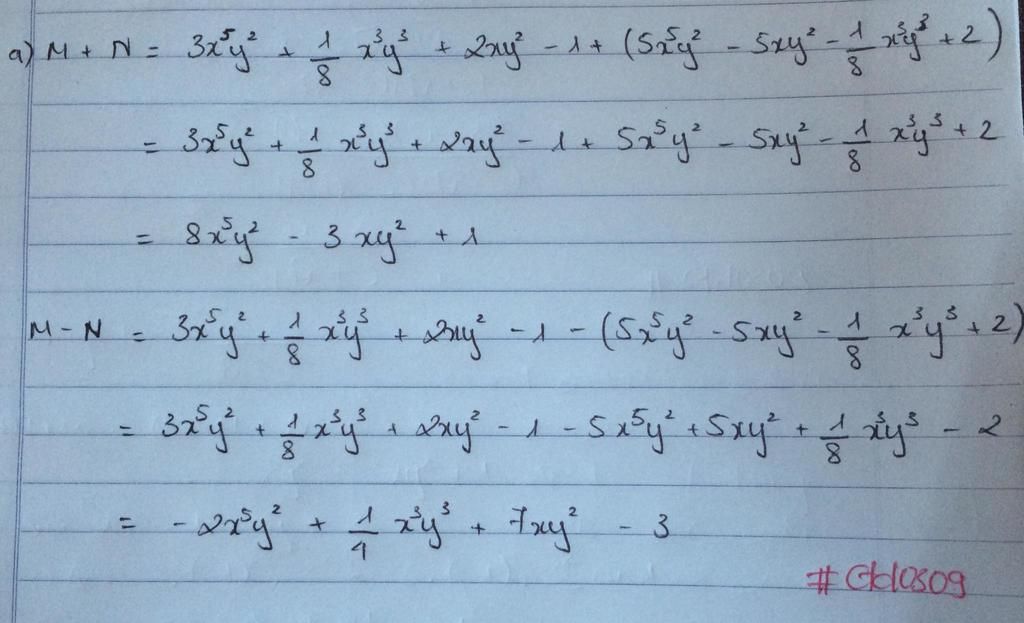 a) M + N = 3x⁵y² + 1/8 x³y³ + 2xy² - 1 + (5x⁵y² - 5xy² - 1/8 x³y³ + 2)
= 3x⁵y² + 1/8 x³y³ + 2xy² - 1 + 5x⁵y² - 5xy² - 1/8 x³y³ + 2
= 8x⁵y² - 3xy² + 1
M - N = 3x⁵y² + 1/8 x³y³ + 2xy² - 1 - (5x⁵y² - 5xy² - 1/8 x³y³ + 2)
= 3x⁵y² + 1/8 x³y³ + 2xy² - 1 - 5x⁵y² + 5xy² + 1/8 x³y³ - 2
= - 2x⁵y² + 1/4 x³y³ + 7xy² - 3